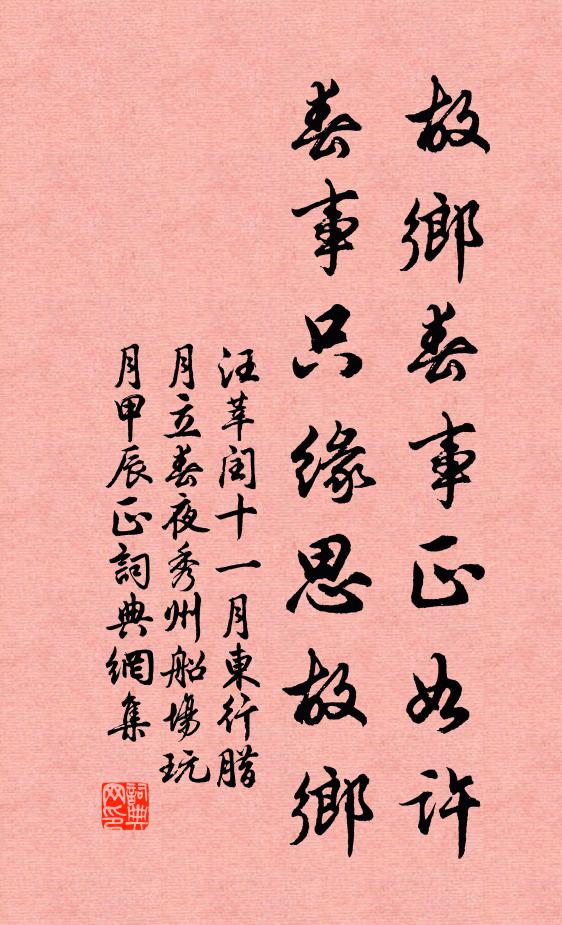 故鄉春事正如許
春事只緣思故鄉
汪莘閏十一月東行腊
月立春夜秀州船場玩
月甲辰正詞典網集
詞典網印